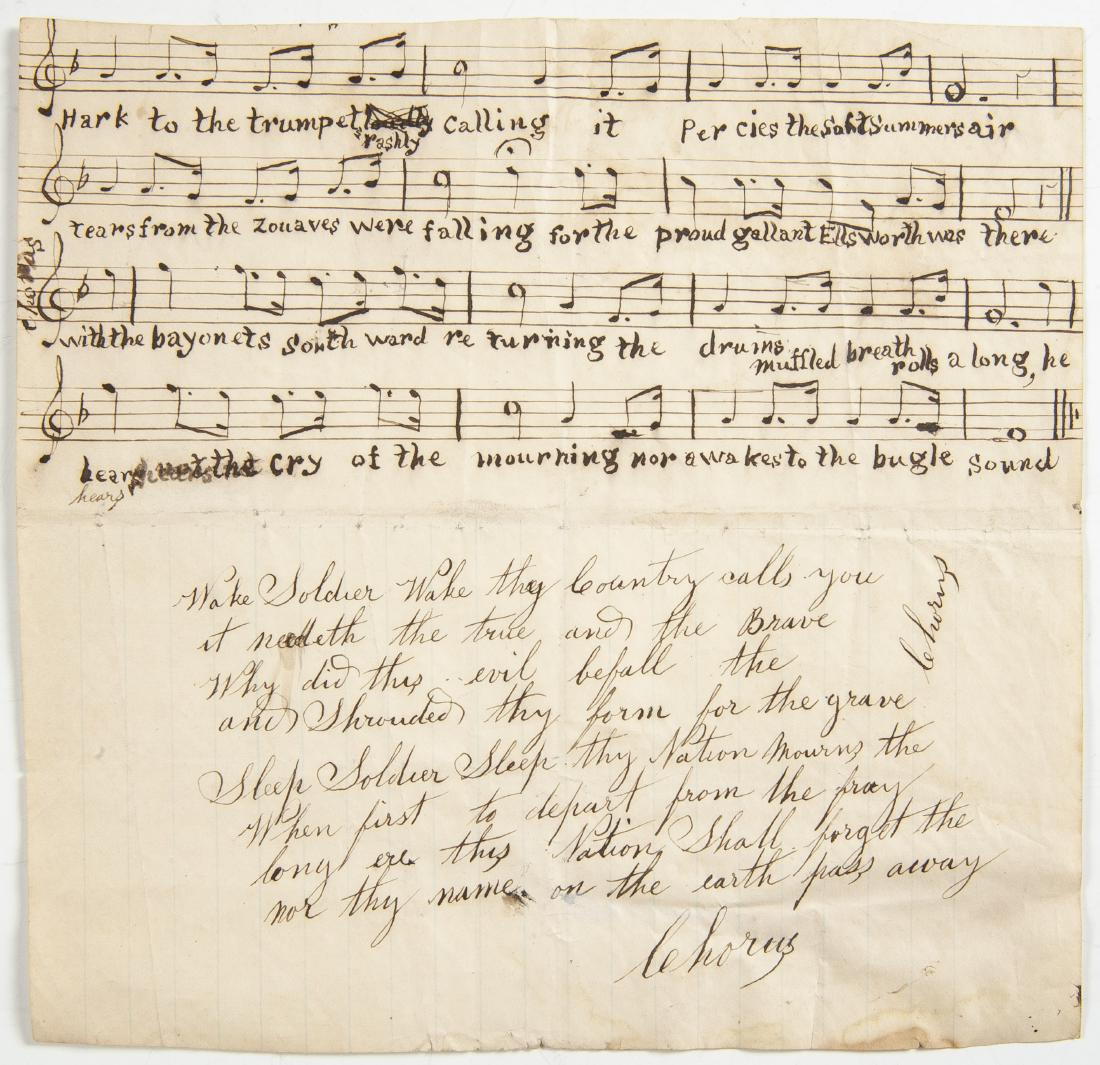 Hark to the trumpet rashly calling it Per cies the Soft Summers air
tears from the Zouaves were falling for the proud gallant Ellsworth was there
Chorus
with the bayonets South ward re turning the drums muffled breath rolls a long, he
hears not the cry of the mourning nor awakes to the bugle Sound
hears
Wake Soldier Wake thy Country calls you
it needeth the true and the Brave
Why did this evil befall the
and Shrouded thy form for the grave
Chorus
Sleep Soldier Sleep thy Nation Mourns the
When first to depart from the fray
long ere this Nation Shall forget the
nor thy name on the earth pass away
Chorus